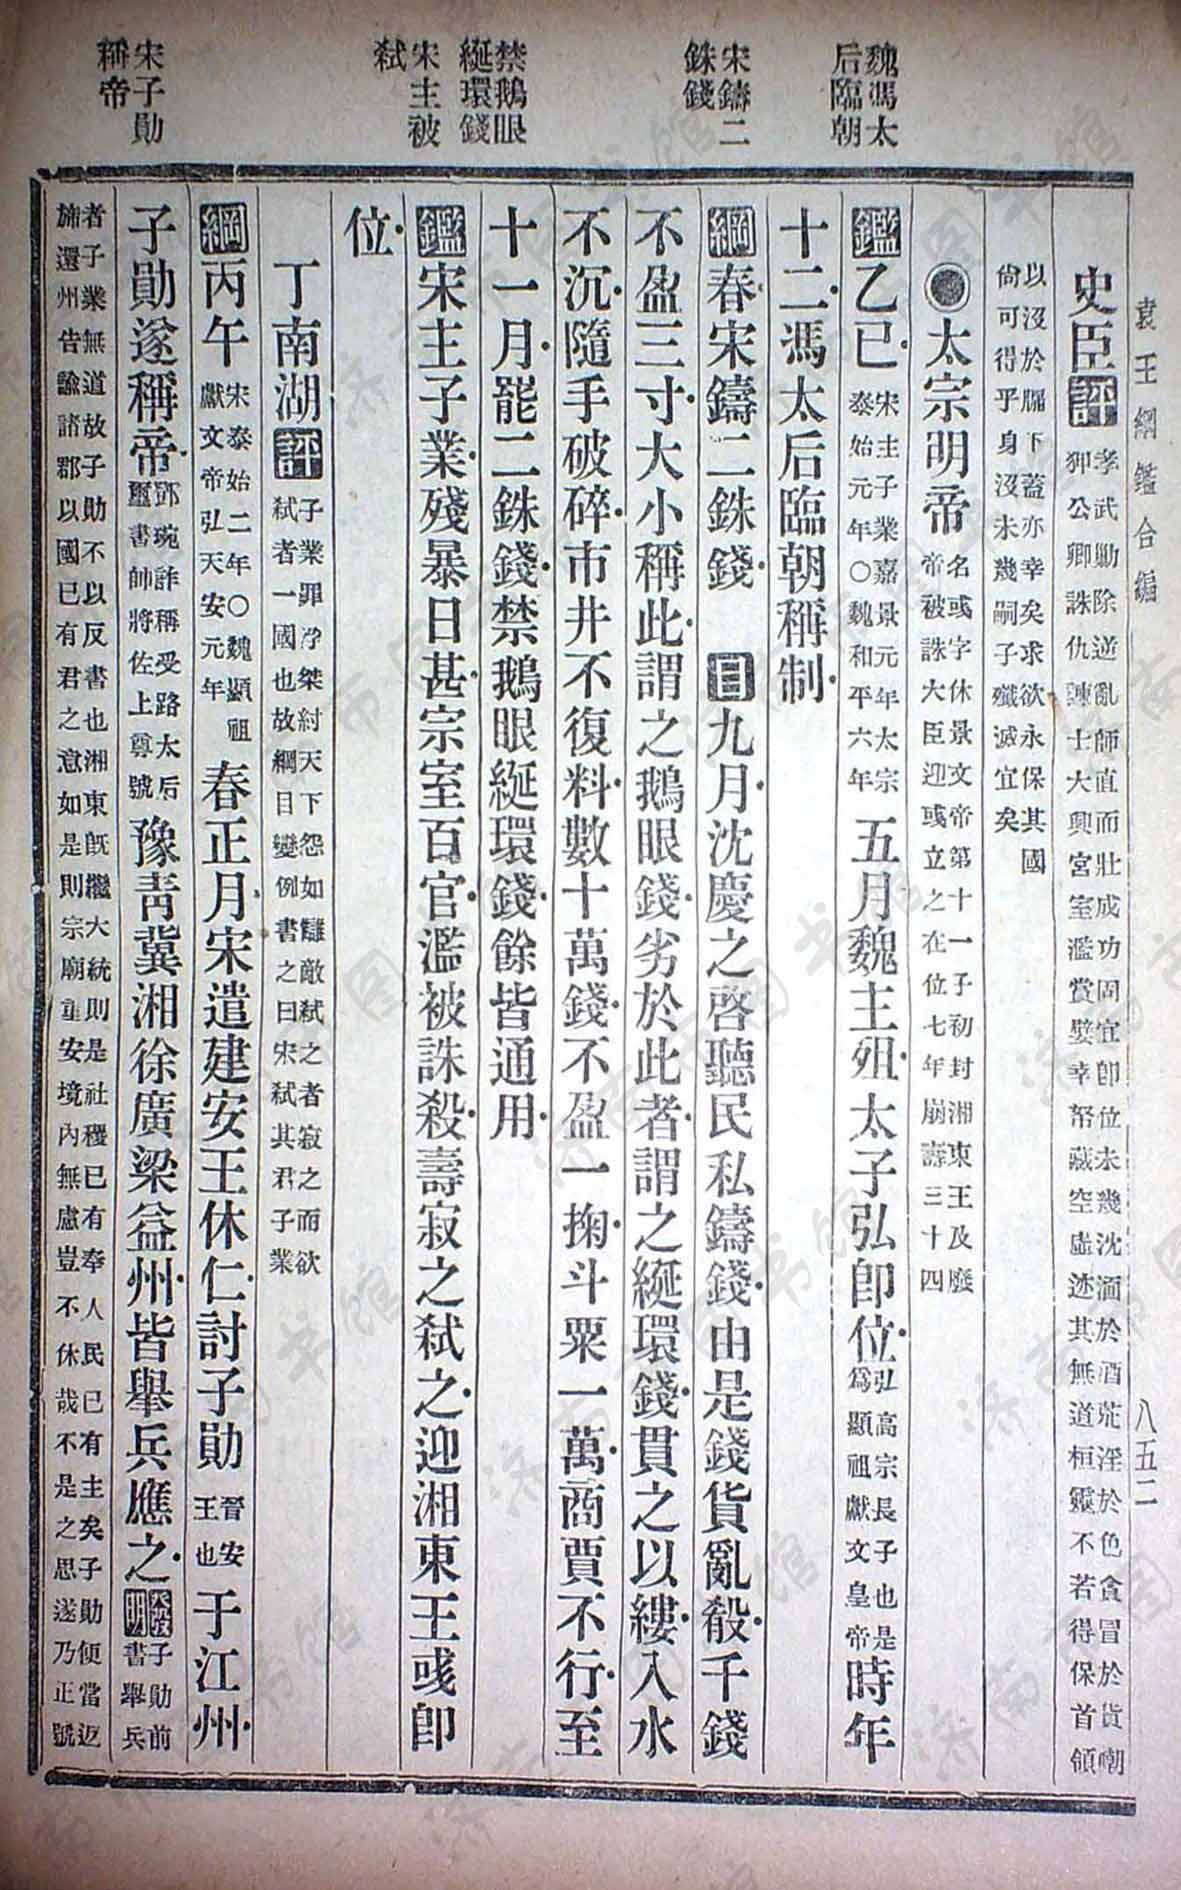 袁王綱鑑合編　八五二
魏馮太
后臨朝
宋鑄二
銖錢
禁鵝眼
綖環錢
宋主被
弒
宋子勛
稱帝
史臣評孝武勦除逆亂師直而壯成功固宜卽位未幾沈湎於酒荒淫於色貪冒於貨嘲
狎公卿誅仇諫士大興宮室濫賞嬖幸帑藏空虛述其無道桓靈不若得保首領
以沒於牖下蓋亦幸矣求欲永保其國
尙可得乎身沒未幾嗣子殲滅宜矣
◉太宗明帝名彧字休景文帝第十一子初封湘東王及廢
帝被誅大臣迎彧立之在位七年崩壽三十四
鑑乙巳宋主子業嘉景元年太宗
泰始元年○魏和平六年
五月魏主殂太子弘卽位弘高宗長子也是
爲顯祖獻文皇帝
時年
十二馮太后臨朝稱制
綱春宋鑄二銖錢　目九月沈慶之啓聽民私鑄錢由是錢貨亂殽千錢
不盈三寸大小稱此謂之鵝眼錢劣於此者謂之綖環錢貫之以縷入水
不沉隨手破碎市井不復料數十萬錢不盈一掬斗粟一萬商賈不行至
十一月罷二銖錢禁鵝眼綖環錢餘皆通用
鑑宋主子業殘暴日甚宗室百官濫被誅殺壽寂之弒之迎湘東王彧卽
位
丁南湖評子業罪浮桀紂天下怨如讎敵弒之者寂之而欲
弒者一國也故綱目變例書之曰宋弒其君子業
綱丙午宋泰始二年○魏顯祖
獻文帝弘天安元年
春正月宋遣建安王休仁討子勛晉安
王也
于江州
子勛遂稱帝鄧琬詐稱受路太后
璽書師將佐上尊號
豫靑冀湘徐廣梁益州皆舉兵應之發明子勛前
書舉兵
者子業無道故子勛不以反書也湘東旣繼大統則是社稷已有奉人民已有主矣子勛便當返
旆還州告諭諸郡以國已有君之意如是則宗廟重安境內無虞豈不休哉不是之思遂乃正號